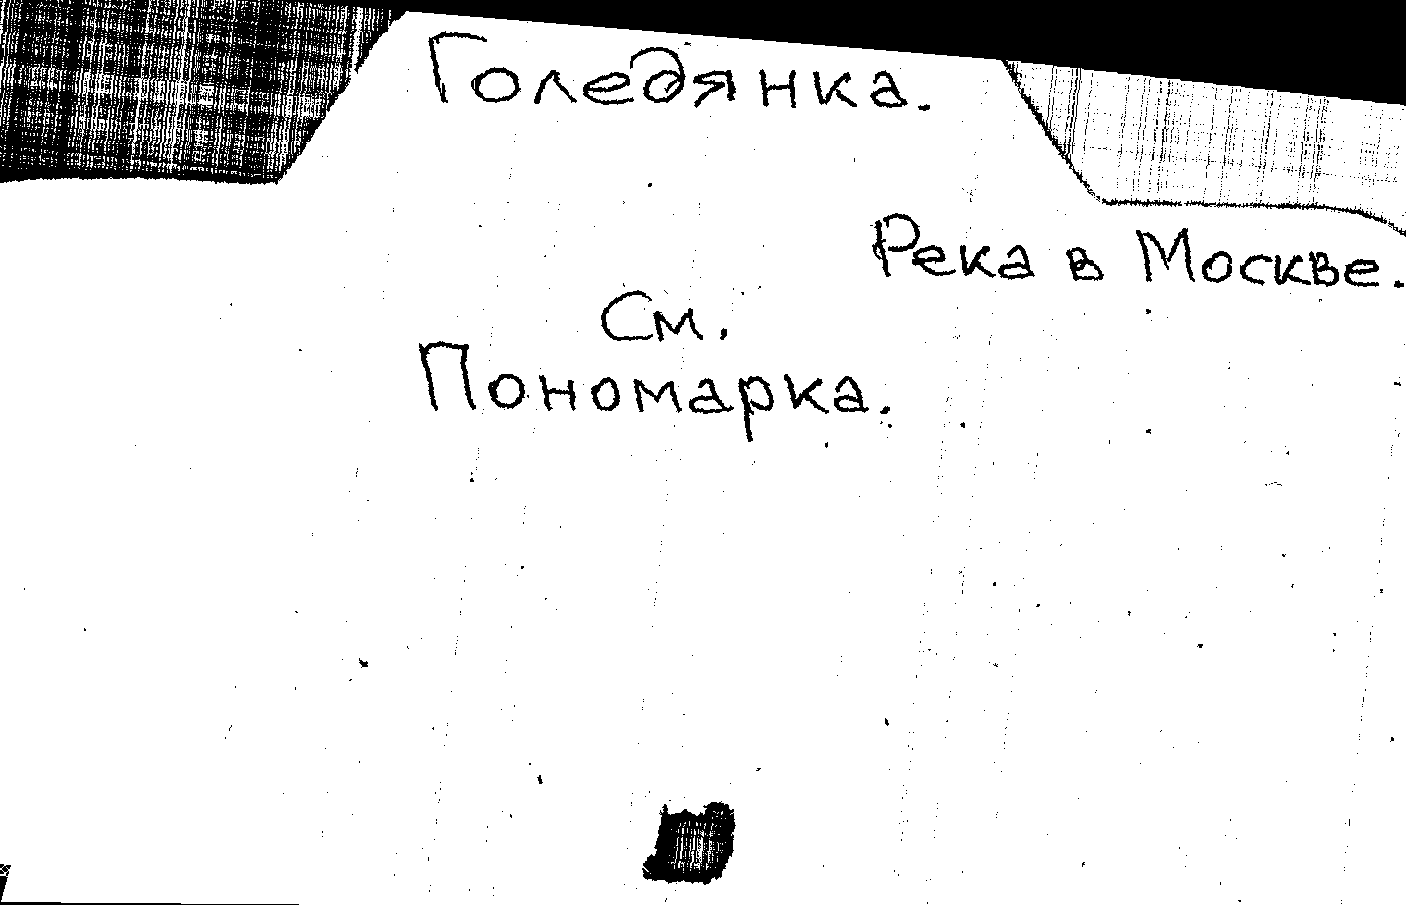 Голедянка.
Река в Москве.
См.
Пономарка.